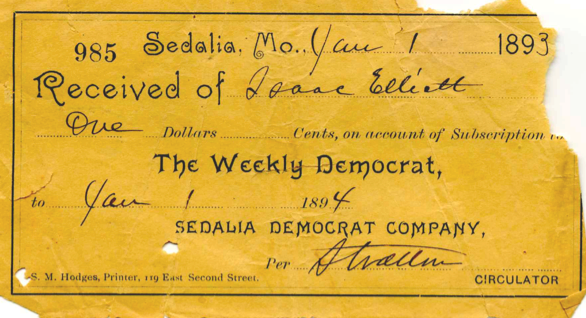 985 Sedalia, Mo., Jan 1 1893
Received of Isaac Elliott
One Dollars Cents, on account of Subscription to
The Weekly Democrat,
to Jan 1 1894
SEDALIA DEMOCRAT COMPANY,
Per Stratton
S. M. Hodges, Printer, 119 East Second Street. CIRCULATOR